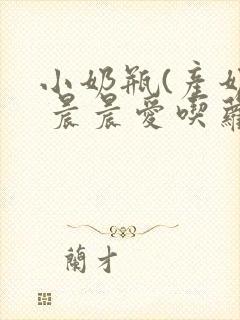 小奶瓶(產奶
晨晨愛喫蘿
蘭才